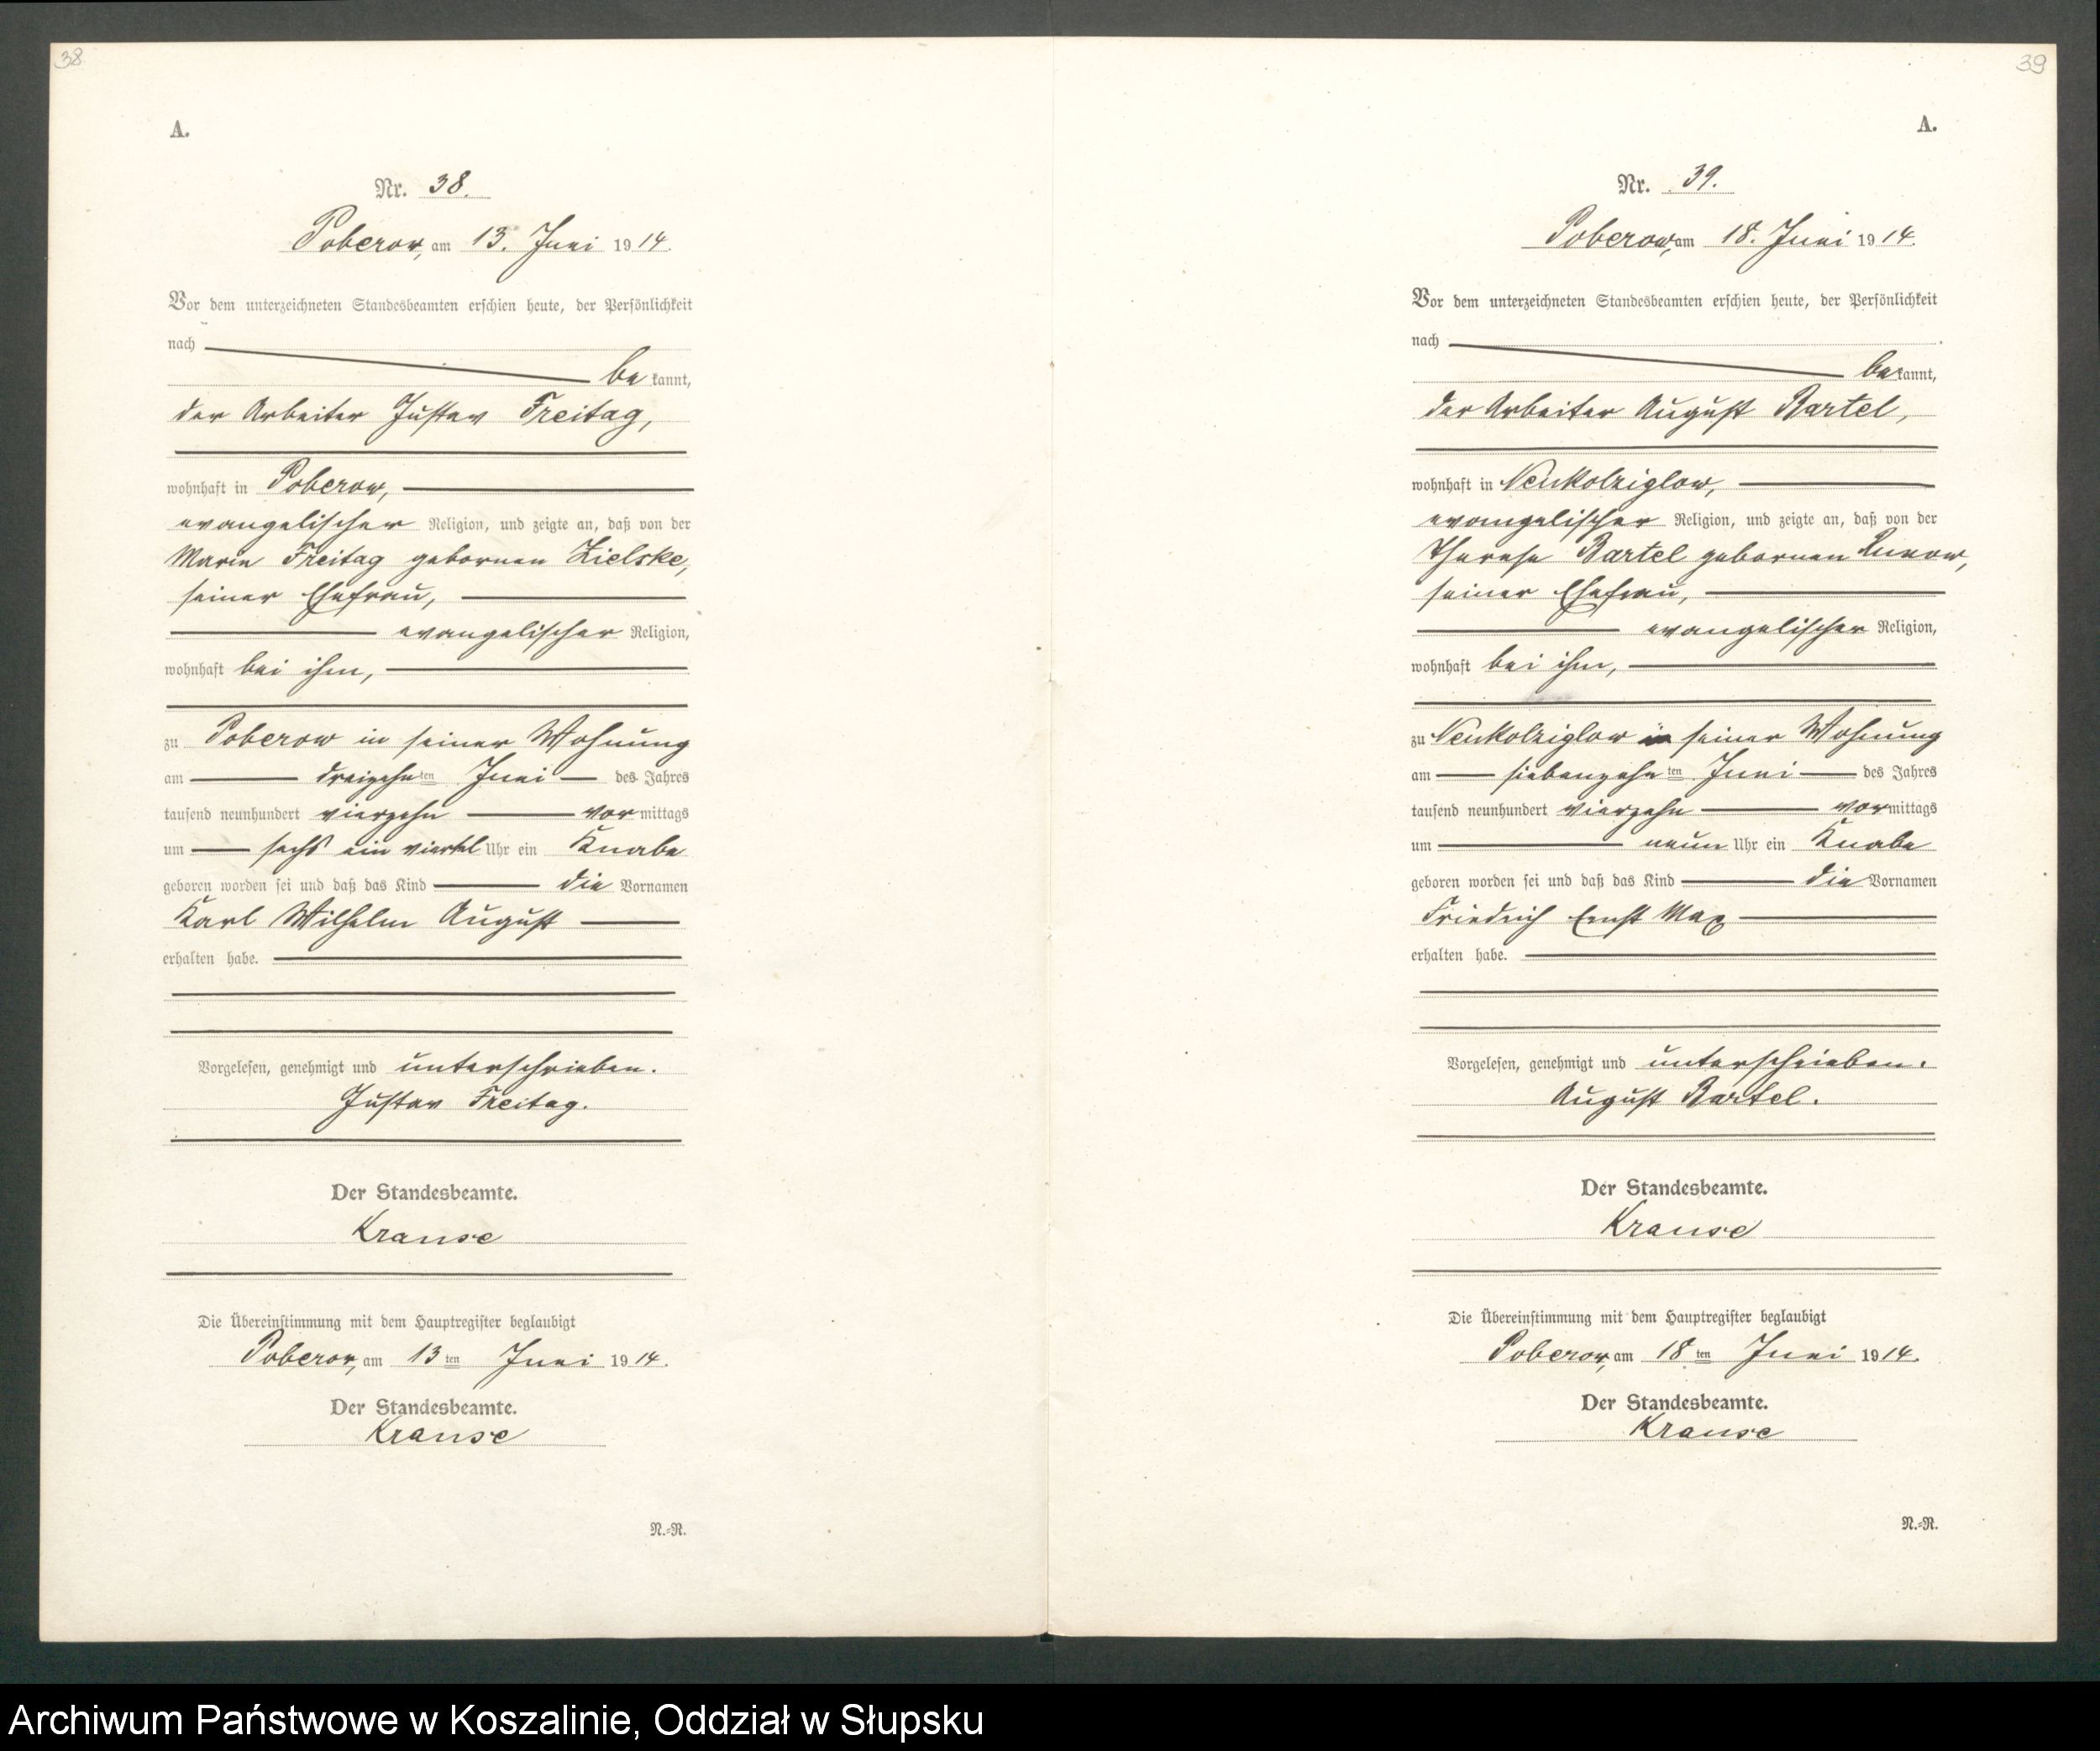 38
A.
Nr. 38.
Poberow, am 13. Juni 1914.
Vor dem unterzeichneten Standesbeamten erschien heute, der Persönlichkeit
nach
bekannt,
der Arbeiter Gustav Freitag,
wohnhaft in Poberow,
evangelischer Religion, und zeigte an, daß von der
Marie Freitag gebornen Zielske,
seiner Ehefrau,
evangelischer Religion,
wohnhaft bei ihm,
zu Poberow in seiner Wohnung
am dreizehnten Juni des Jahres
tausend neunhundert vierzehn vormittags
um sechs ein viertel Uhr ein Knabe
geboren worden sei und daß das Kind die Vornamen
Karl Wilhelm August
erhalten habe.
Vorgelesen, genehmigt und unterschrieben.
Gustav Freitag.
Der Standesbeamte.
Krause
Die Übereinstimmung mit dem Hauptregister beglaubigt
Poberow, am 13ten Juni 1914.
Der Standesbeamte.
Krause
N.=R.
39
A.
Nr. 39.
Poberow, am 18. Juni 1914.
Vor dem unterzeichneten Standesbeamten erschien heute, der Persönlichkeit
nach
bekannt,
der Arbeiter August Bartel,
wohnhaft in Neukolziglow,
evangelischer Religion, und zeigte an, daß von der
Therese Bartel gebornen
seiner Ehefrau,
evangelischer Religion,
wohnhaft bei ihm,
zu Neukolziglow in seiner Wohnung
am siebenzehnten Juni des Jahres
tausend neunhundert vierzehn vormittags
um neun Uhr ein Knabe
geboren worden sei und daß das Kind die Vornamen
Friedrich Ernst Max
erhalten habe.
Vorgelesen, genehmigt und unterschrieben.
August Bartel.
Der Standesbeamte.
Krause
Die Übereinstimmung mit dem Hauptregister beglaubigt
Poberow, am 18ten Juni 1914.
Der Standesbeamte.
Krause
N.=R.
Archiwum Państwowe w Koszalinie, Oddział w Słupsku